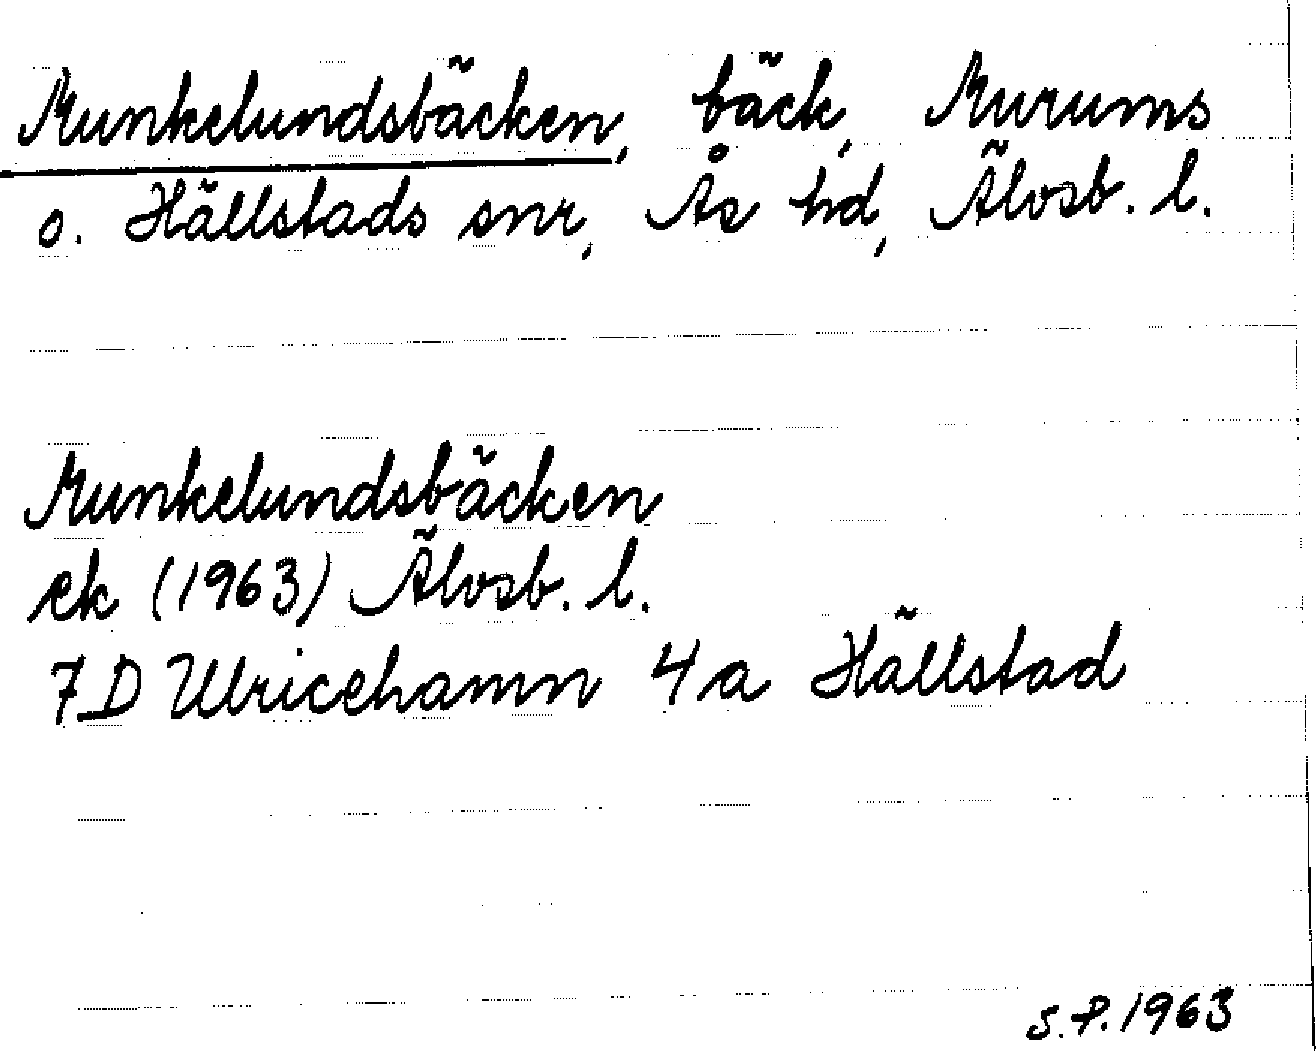 Munkelundsbäcken, bäck, Murums
o. Hällstads snr, Ås hd, Älvsb. l.
Munkelundsbäcken
ek (1963) Älvsb. l.
7D Ulricehamn 4a Hällstad
S.P. 1963